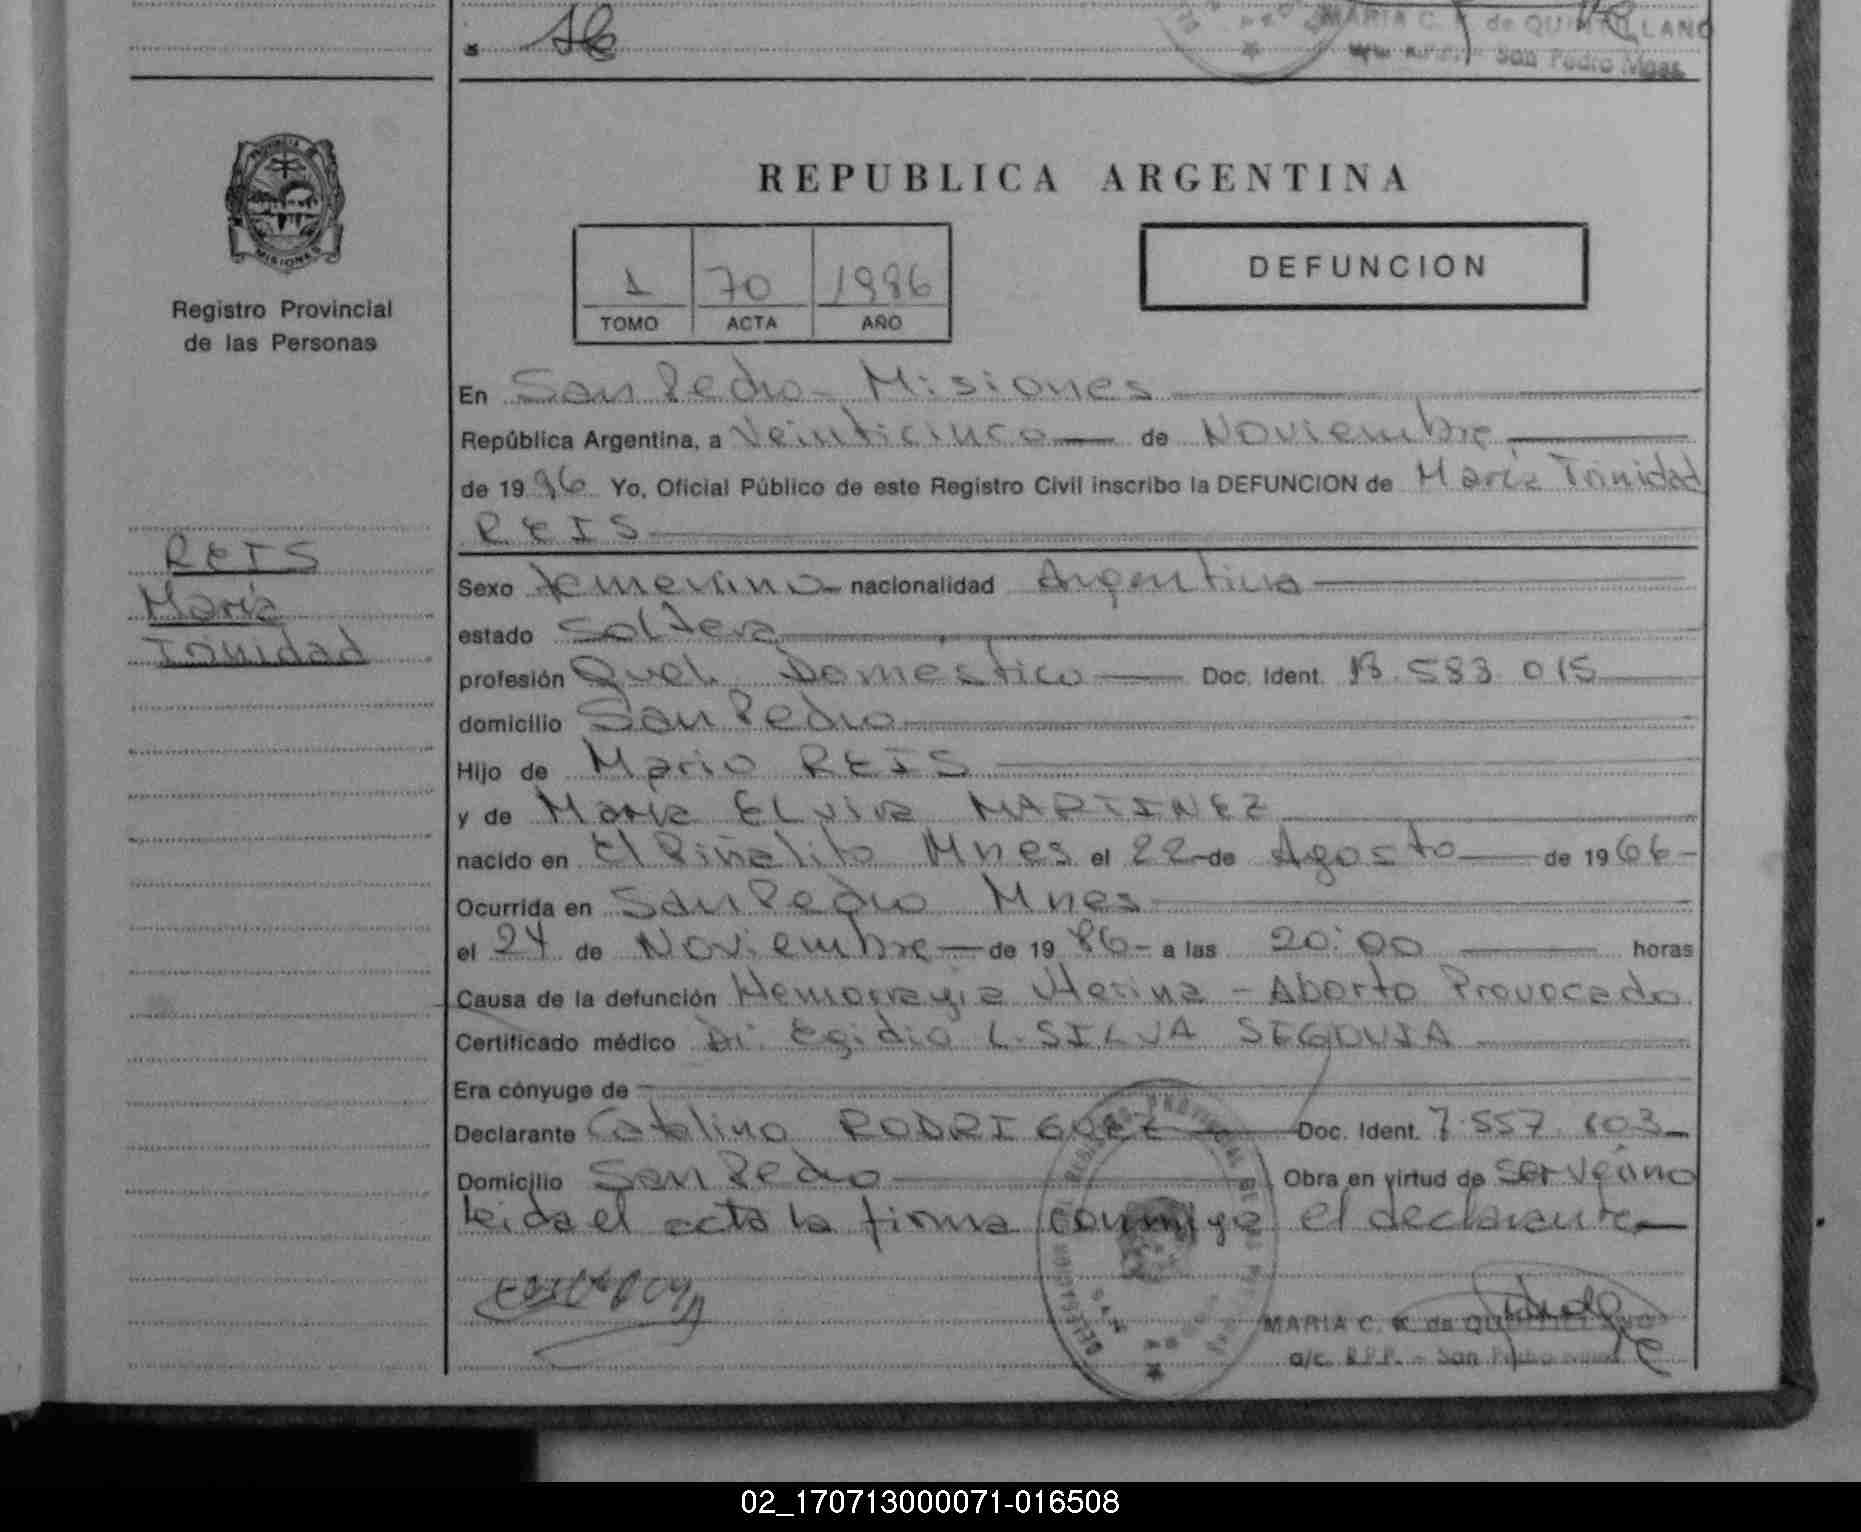 MARIA C. K. de QUINTILLANO
a/c. R.P.P. - San Pedro Mnes.
REPUBLICA ARGENTINA
PROVINCIA DE
MISIONES
Registro Provincial
de las Personas
1 70 1986
TOMO ACTA AÑO
DEFUNCION
En San Pedro - Misiones
República Argentina, a Veinticinco de Noviembre
de 19 86 Yo, Oficial Público de este Registro Civil inscribo la DEFUNCION de María Trinidad
REIS
REIS
María
Trinidad
Sexo femenino nacionalidad Argentina
estado Soltera
profesión Queh. Domestico Doc. Ident. 18.583.015
domicilio San Pedro
Hijo de Mario REIS
y de María Elvira MARTINEZ
nacido en El Piñalito Mnes el 22 de Agosto de 1966
Ocurrida en San Pedro Mnes
el 24 de Noviembre de 19 86 a las 20:00 horas
Causa de la defunción Hemorragia Uterina - Aborto Provocado
Certificado médico Dr. Egidio L. SILVA SEGOVIA
Era cónyuge de
Declarante Catalino RODRIGUEZ Doc. Ident. 7.557.603
Domicilio San Pedro Obra en virtud de ser vecino
leida el acta la firma conmigo el declarante
MARIA C. K. de QUINTILLANO
a/c. R.P.P. - San Pedro Mnes
02_170713000071-016508